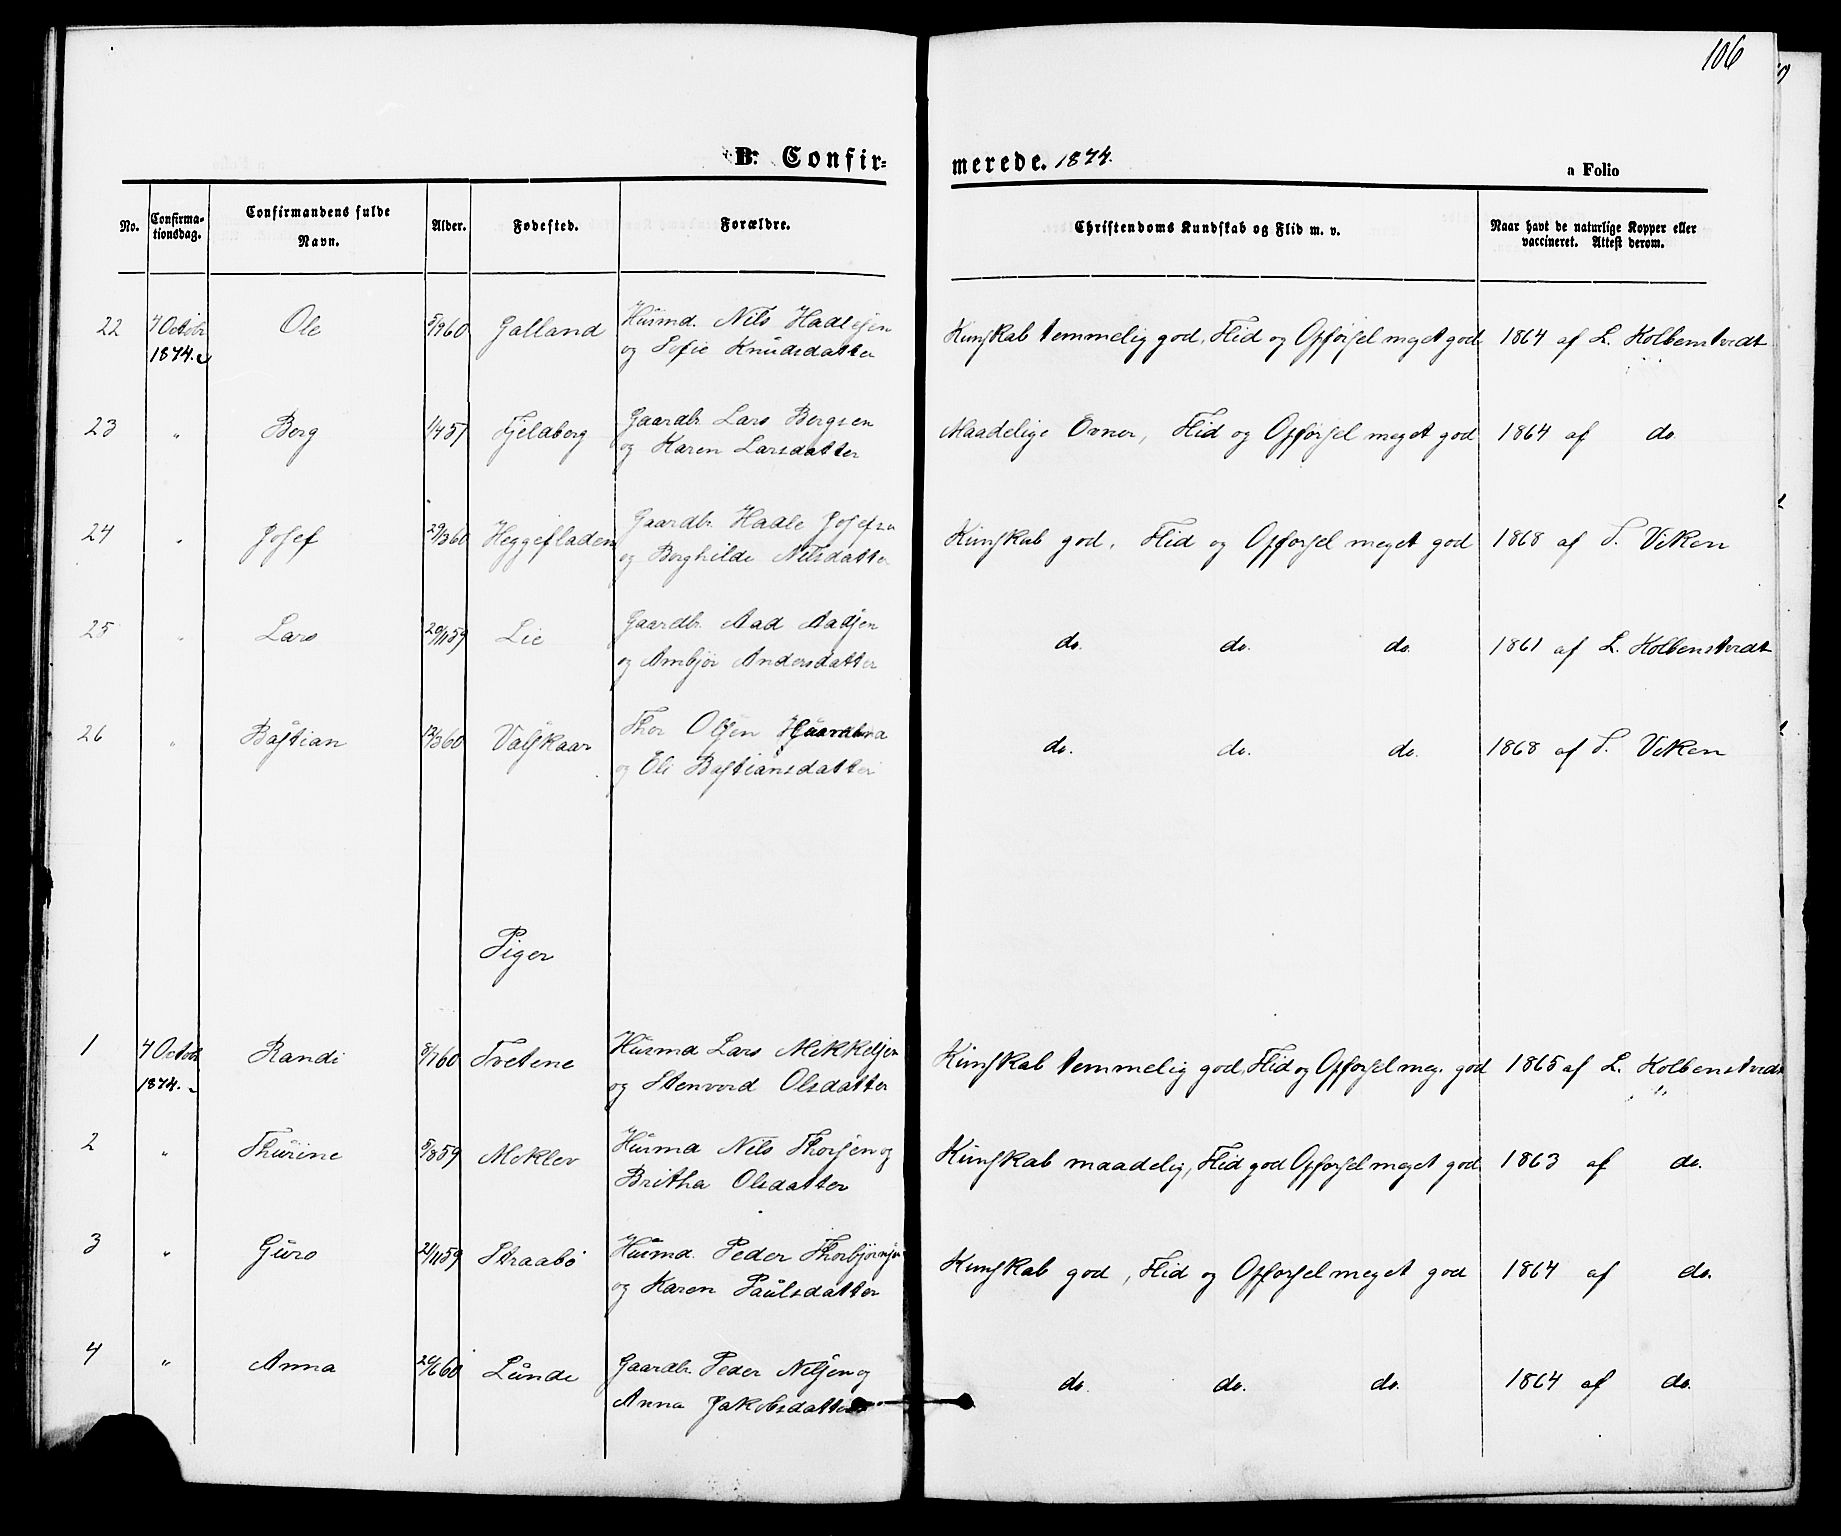 106
B. Confir-
merede. 1874.
a Folio
No.
Confirma-
tionsdag.
Confirmandens fulde
Navn.
Alder.
Fødested.
Forældre.
Christendoms Kundskab og Flid m. v.
Naar havt de naturlige Kopper eller
vaccineret. Attest derom.
22 4 Octobr Ole 5/9 60 Galland Husmd. Nils Hadlesen Kunskab temmelig god, Flid og Opførsel meget god. 1864 af L. Kolbenstvedt
1874. og Sofie Knudsdatter
23 " Borg 1/4 57 Fjeldborg Gaardbr. Lars Bergsen Maadelige Evner, Flid og Opførsel meget god 1864 af do.
og Karen Larsdatter
24 " Josef 29/3 60 Heggefladen Gaardbr. Haale Josefsn Kunskab god, Flid og Opførsel meget god 1868 af S. Viken
og Borghilde Nilsdatter
25 " Lars 20/11 59 Lie Gaardbr. Aad Aadsen do. do. do. 1861 af L. Kolbenstvedt
og Ambjør Andersdatter
26 " Bastian 12/3 60 Valskaar Thor Olsen do. do. do. 1868 af S. Viken
og Eli Bastiansdatter
Piger
1 4 Octobr Randi 8/1 60 Tvetene Husmd Lars Mikkelsen Kunskab temmelig god, Flid og Opførsel meg. god 1865 af L. Kolbenstvedt
1874. og Stenvord Olsdatter
2 " Thurine 5/8 59 Meklev Husmd Nils Thorsen og Kunskab maadelig, Flid god Opførsel meget god 1863 af do.
Britha Olsdatter
3 " Guro 21/11 59 Straabø Husmd. Peder Thorbjørnsen Kunskab god, Flid og Opførsel meget god 1864 af do.
og Karen Paulsdatter
4 " Anna 20/6 60 Lunde Gaardbr. Peder Nilsen og do. do. do. 1864 af do.
Anna Jakobsdatter